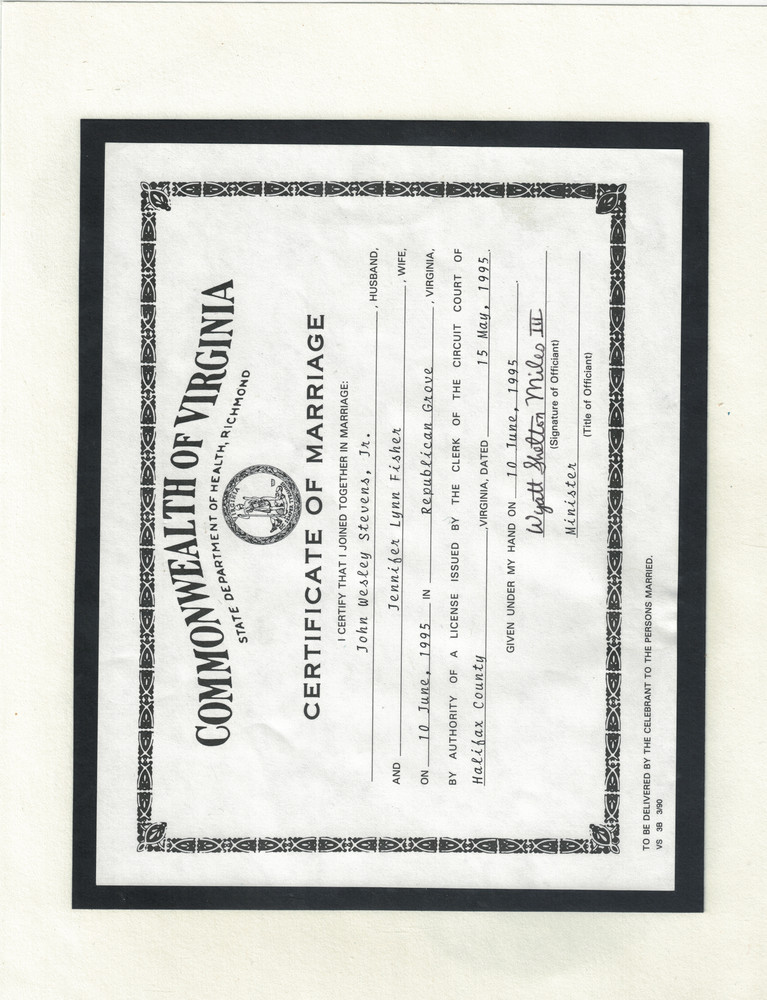 COMMONWEALTH OF VIRGINIA
STATE DEPARTMENT OF HEALTH, RICHMOND
CERTIFICATE OF MARRIAGE
I CERTIFY THAT I JOINED TOGETHER IN MARRIAGE:
John Wesley Stevens, Jr. , HUSBAND,
AND Jennifer Lynn Fisher , WIFE,
ON 10 June, 1995 IN Republican Grove , VIRGINIA,
BY AUTHORITY OF A LICENSE ISSUED BY THE CLERK OF THE CIRCUIT COURT OF
Halifax County , VIRGINIA, DATED 15 May, 1995.
GIVEN UNDER MY HAND ON 10 June, 1995.
Wyatt Shelton Miles III
(Signature of Officiant)
Minister
(Title of Officiant)
TO BE DELIVERED BY THE CELEBRANT TO THE PERSONS MARRIED.
VS 3B 3/90